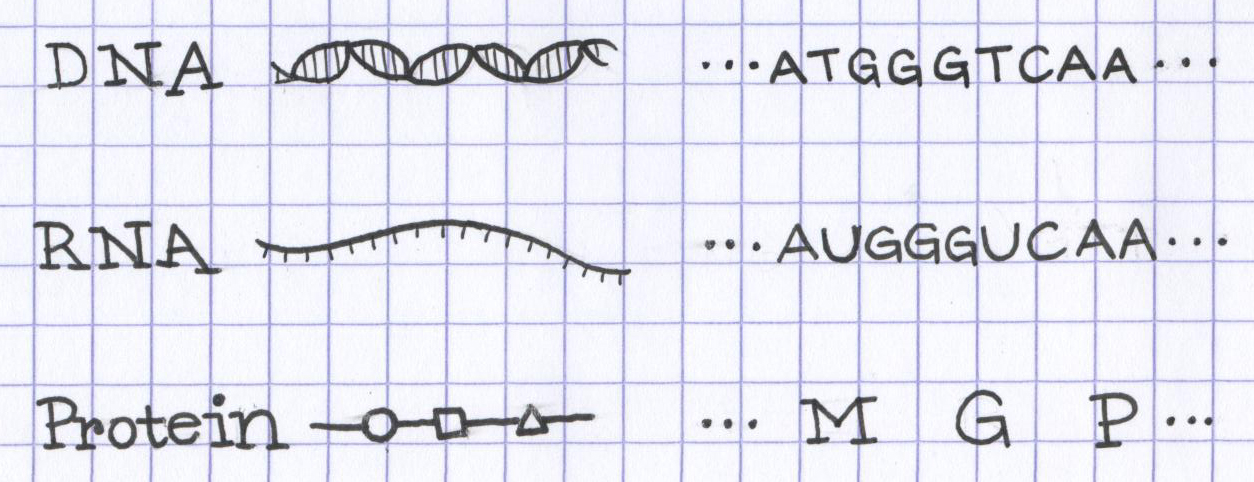 DNA ...ATGGGTCAA...
RNA ...AUGGGUCAA...
Protein ... M G P...